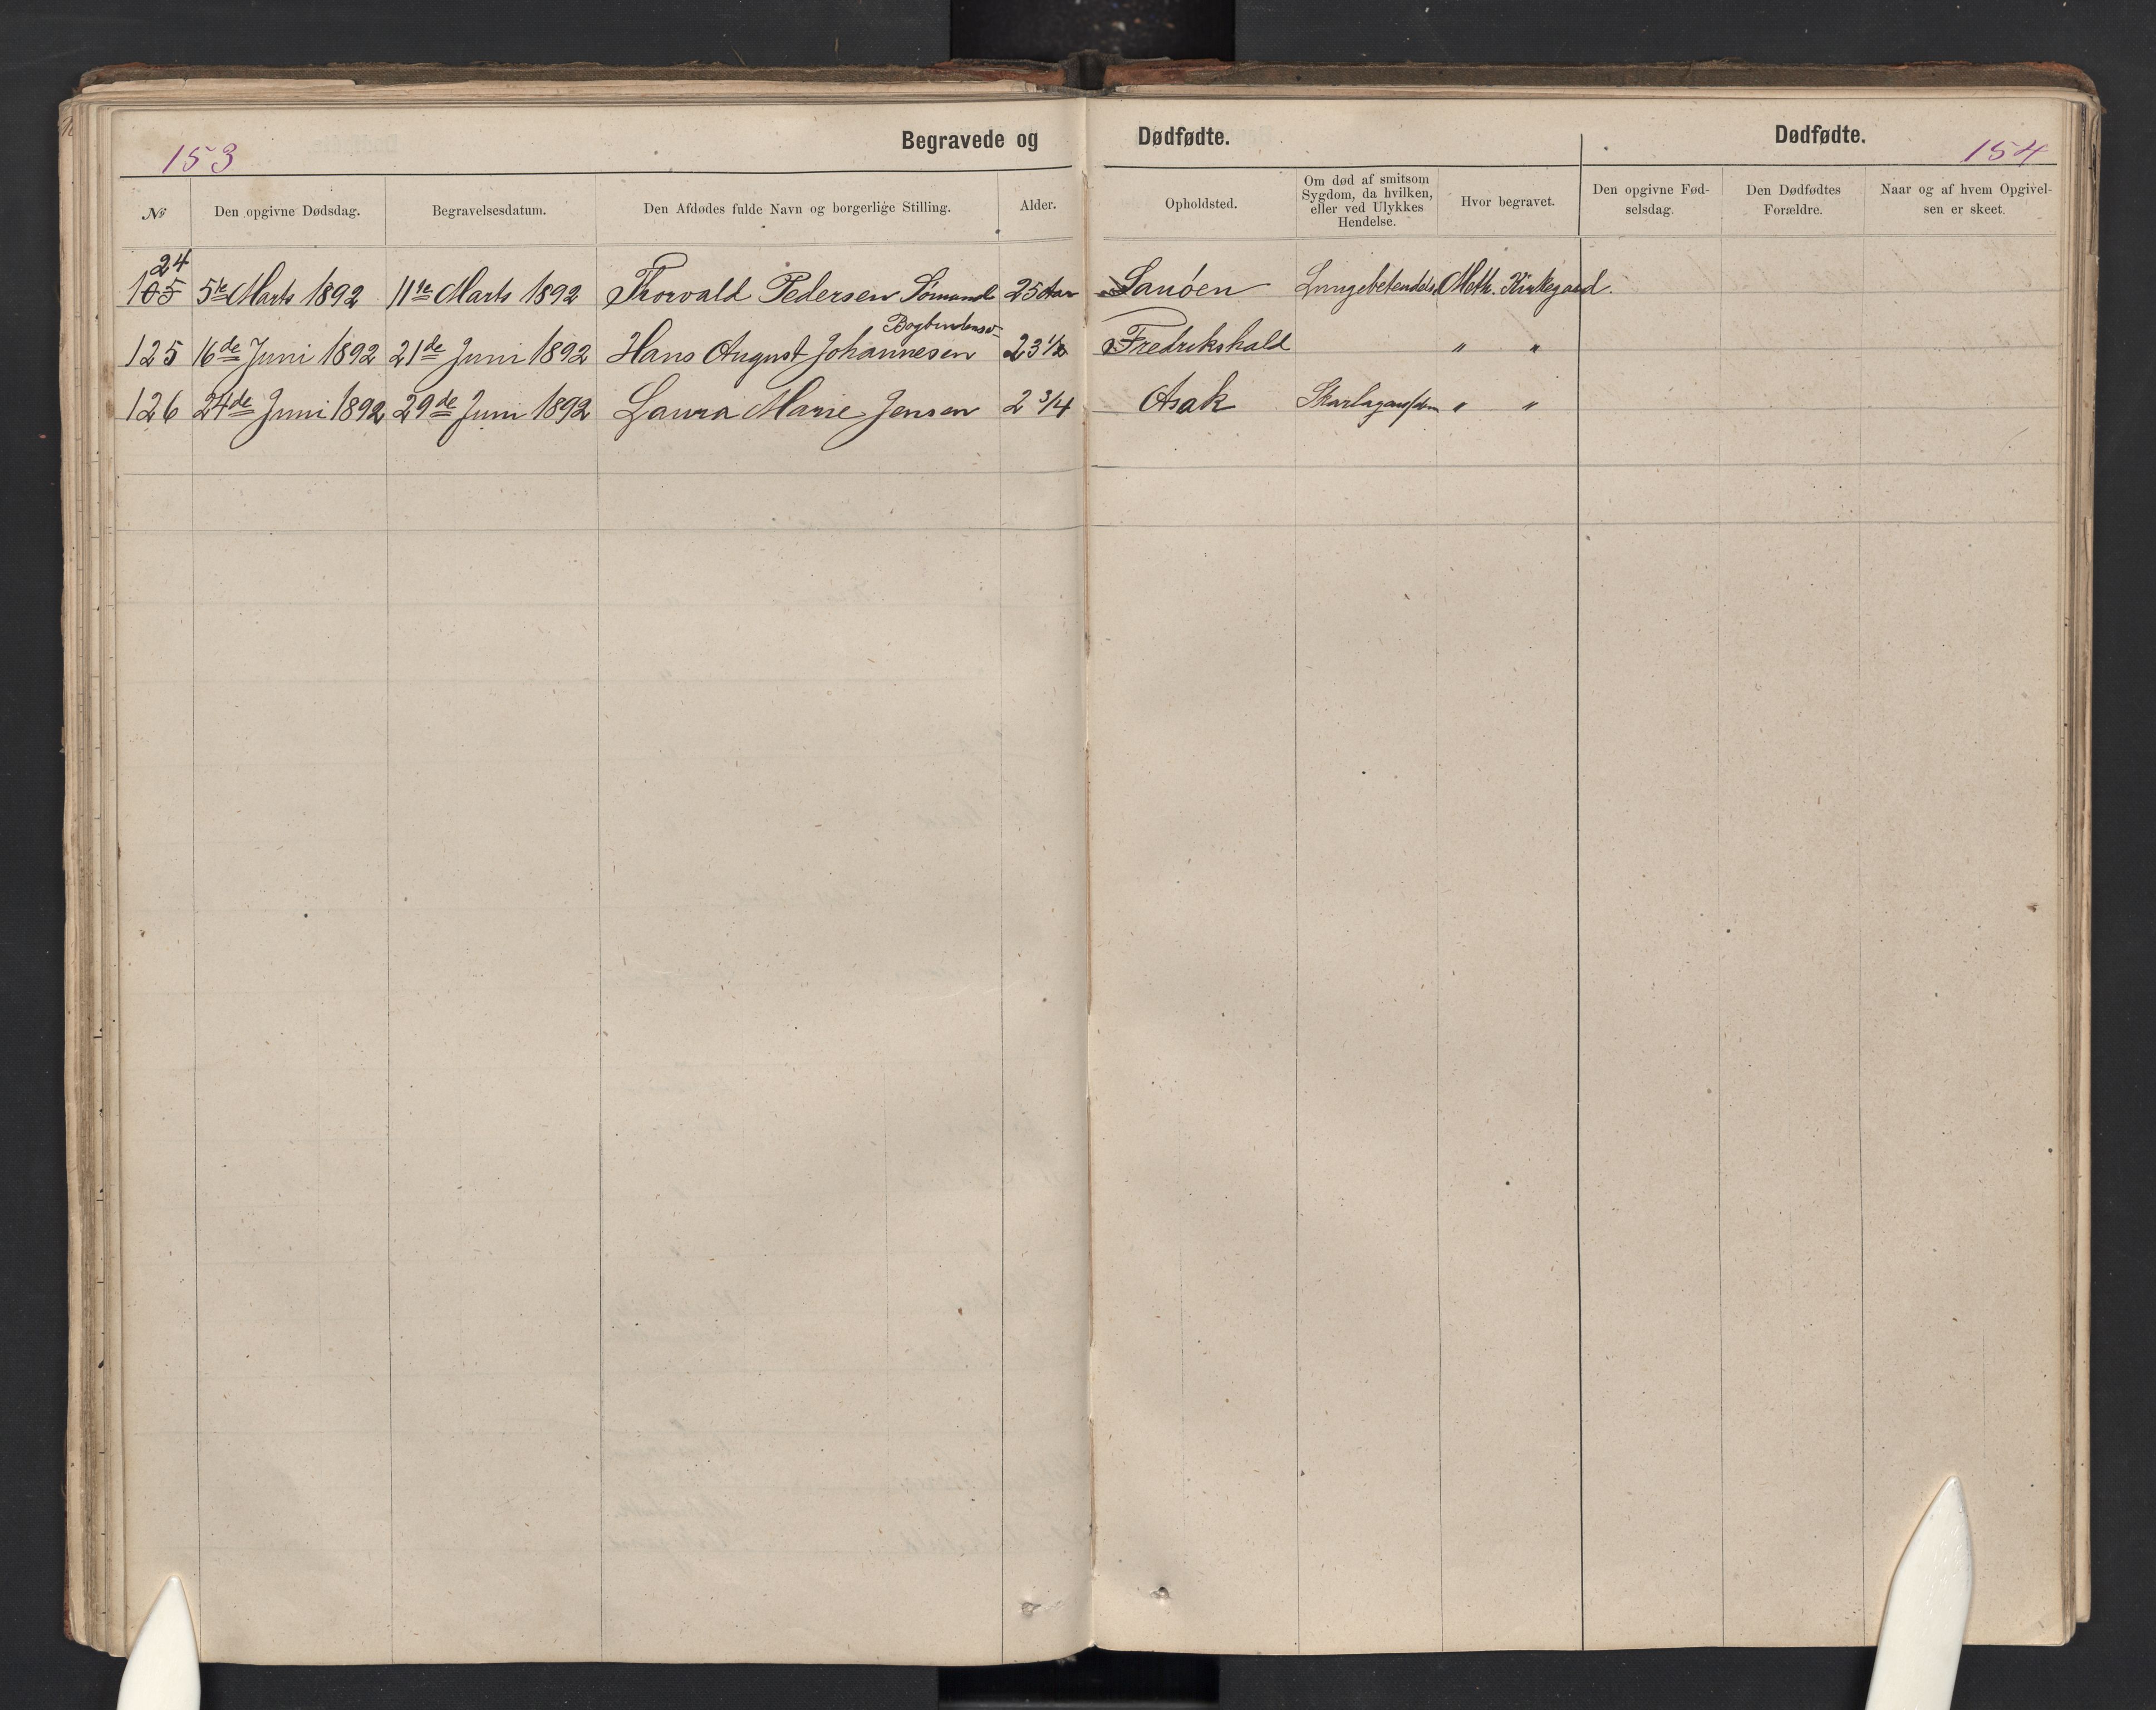 153
Begravede og Dødfødte.
Dødfødte.
154
№
Den opgivne Dødsdag.
Begravelsesdatum.
Den Afdødes fulde Navn og borgerlige Stilling.
Alder.
Opholdsted.
Om død af smitsom
Sygdom, da hvilken,
eller ved Ulykkes
Hendelse.
Hvor begravet.
Den opgivne Fød-
selsdag.
Den Dødfødtes
Forældre.
Naar og af hvem Opgivel-
sen er skeet.
24
105 5te Marts 1892 11te Marts 1892 Thorvald Pedersen Sömand 25 Aar Sauöen Lungebetendelse Meth. Kirkegaard.
125 16de Juni 1892 21de Juni 1892 Hans August Johannesen 23 1/2 Fredrikshald " "
126 24de Juni 1892 29de Juni 1892 Laura Marie Jensen 2 3/4 Asak " "